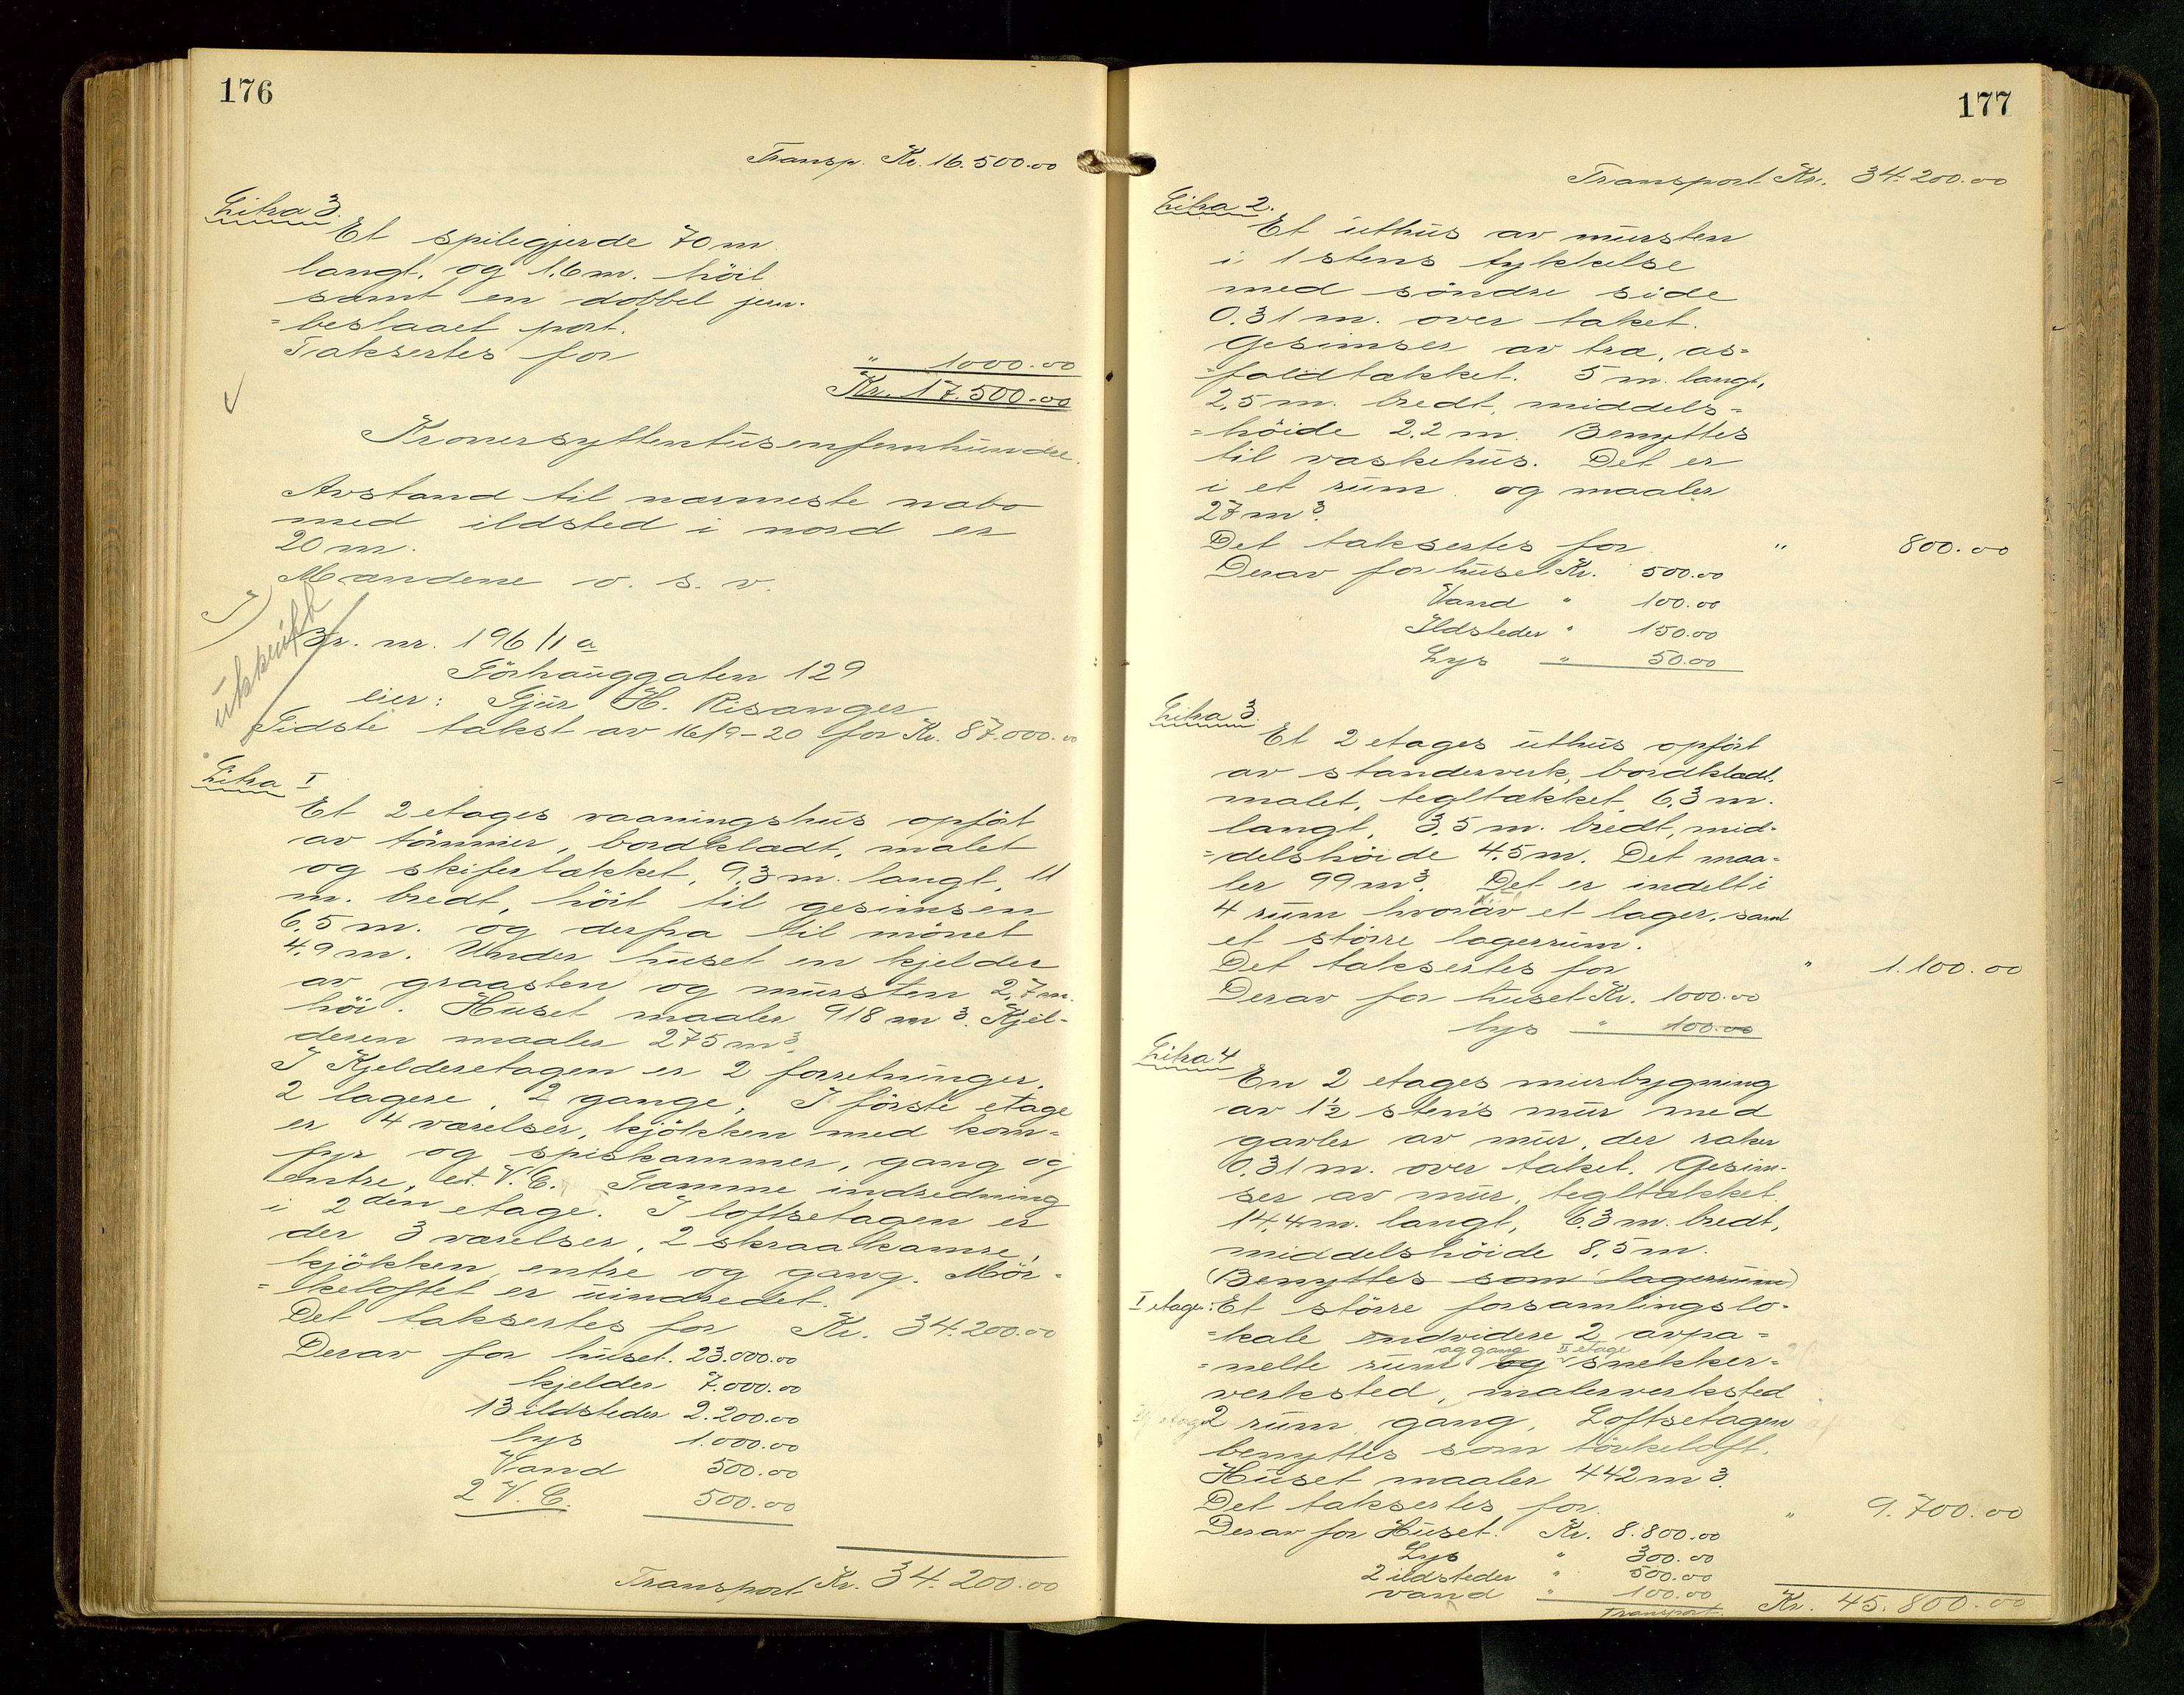 176
Transp. Kr. 16.500.00
Litra 3.
Et spilegjerde 70 m
langt, og 1.6 m. höit
samt en dobbel jern-
=beslaaet port.
Taksertes for
" 1000.00
Kr. 17.500.00
Kronersyttentusenfemhundre.
Avstand til nærmeste nabo
med ildsted i nord er
20 m.
Mændene o. s. v.
J)
utskrift
Br. nr. 196/1 a
Sörhauggaten 129
eier: Sjur H. Risanger
Sidste takst av 16/9-20 for Kr. 87.000.00
Litra I
Et 2 etages vaaningshus opfört
av tömmer, bordklædt, malet
og skifertækket, 9,3 m. langt, 11
m. bredt, höit til gesimsen
6,5 m. og derfra til mönet
4,9 m. Under huset en kjelder
av graasten og mursten 2,7 m.
höi. Huset maaler 918 m3. Kjel-
deren maaler 275 m3.
I Kjelderetagen er 2 forretninger,
2 lagere, 2 gange, I förste etage
er 4 værelser, kjökken med kom-
fyr og spiskammer, gang og
entre, et V.C. Samme indredning
i 2den etage. I loftsetagen er
der 3 værelser, 2 skraakamre,
kjökken, entre og gang. Mör-
=keloftet er uindredet.
Det taksertes for Kr. 34.200.00
Derav for huset. 23.000.00
kjelder 7.000.00
13 ildsteder 2.200.00
lys 1.000.00
Vand 500.00
2 V.C. 500.00
Transport Kr. 34.200.00
177
Transport Kr. 34.200.00
Litra 2.
Et uthus av mursten
i 1 stens tykkelse
med söndre side
0.31 m. over taket.
Gesimser av træ, as=
=faldtækket. 5 m. langt,
2,5 m. bredt, middels=
=höide 2,2 m. Benyttes
til vaskehus. Det er
i et rum og maaler
27 m3.
Det taksertes for " 800.00
Derav for huset Kr. 500.00
Vand " 100.00
Ildsteder " 150.00
Lys " 50.00
Litra 3.
Et 2 etages uthus opfört
av standerverk, bordklædt,
malet, tegltækket, 6,3 m.
langt, 3,5 m. bredt, mid-
=delshöide 4,5 m. Det maa-
ler 99 m3. Det er indelt i
4 rum hvorav et lager, samt
et större lagerrum.
Det taksertes for " 1.100.00
Derav for huset Kr. 1000.00
lys " 100.00
Litra 4
En 2 etages murbygning
av 1½ stens mur med
gavler av mur, der raker
0,31 m. over taket. Gesim-
ser av mur, tegltækket
14,4 m. langt, 6,3 m. bredt,
middelshöide 8,5 m.
(Benyttes som lagerrum)
I etage: Et större forsamlingslo-
=kale endvidere 2 avpa=
og gang II etage
=nelte rum og snekker=
verksted, malerverksted
2 rum gang, Loftsetagen
benyttes som törkeloft.
Huset maaler 442 m3.
Det taksertes for " 9.700.00
Derav for Huset. Kr. 8.800.00
Lys " 300.00
2 ildsteder " 500.00
vand " 100.00
Transport Kr. 45.800.00